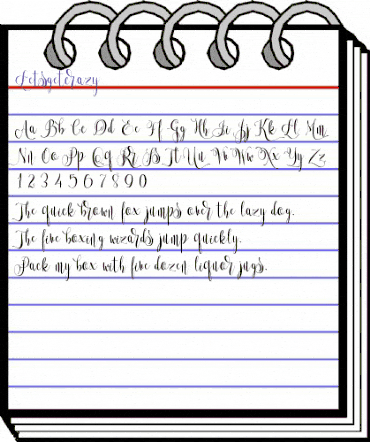 Letsgetcrazy
Aa Bb Cc Dd Ee Ff Gg Hh Ii Jj Kk Ll Mm
Nn Oo Pp Qq Rr Ss Tt Uu Vv Ww Xx Yy Zz
1 2 3 4 5 6 7 8 9 0
The quick brown fox jumps over the lazy dog.
The five boxing wizards jump quickly.
Pack my box with five dozen liquor jugs.